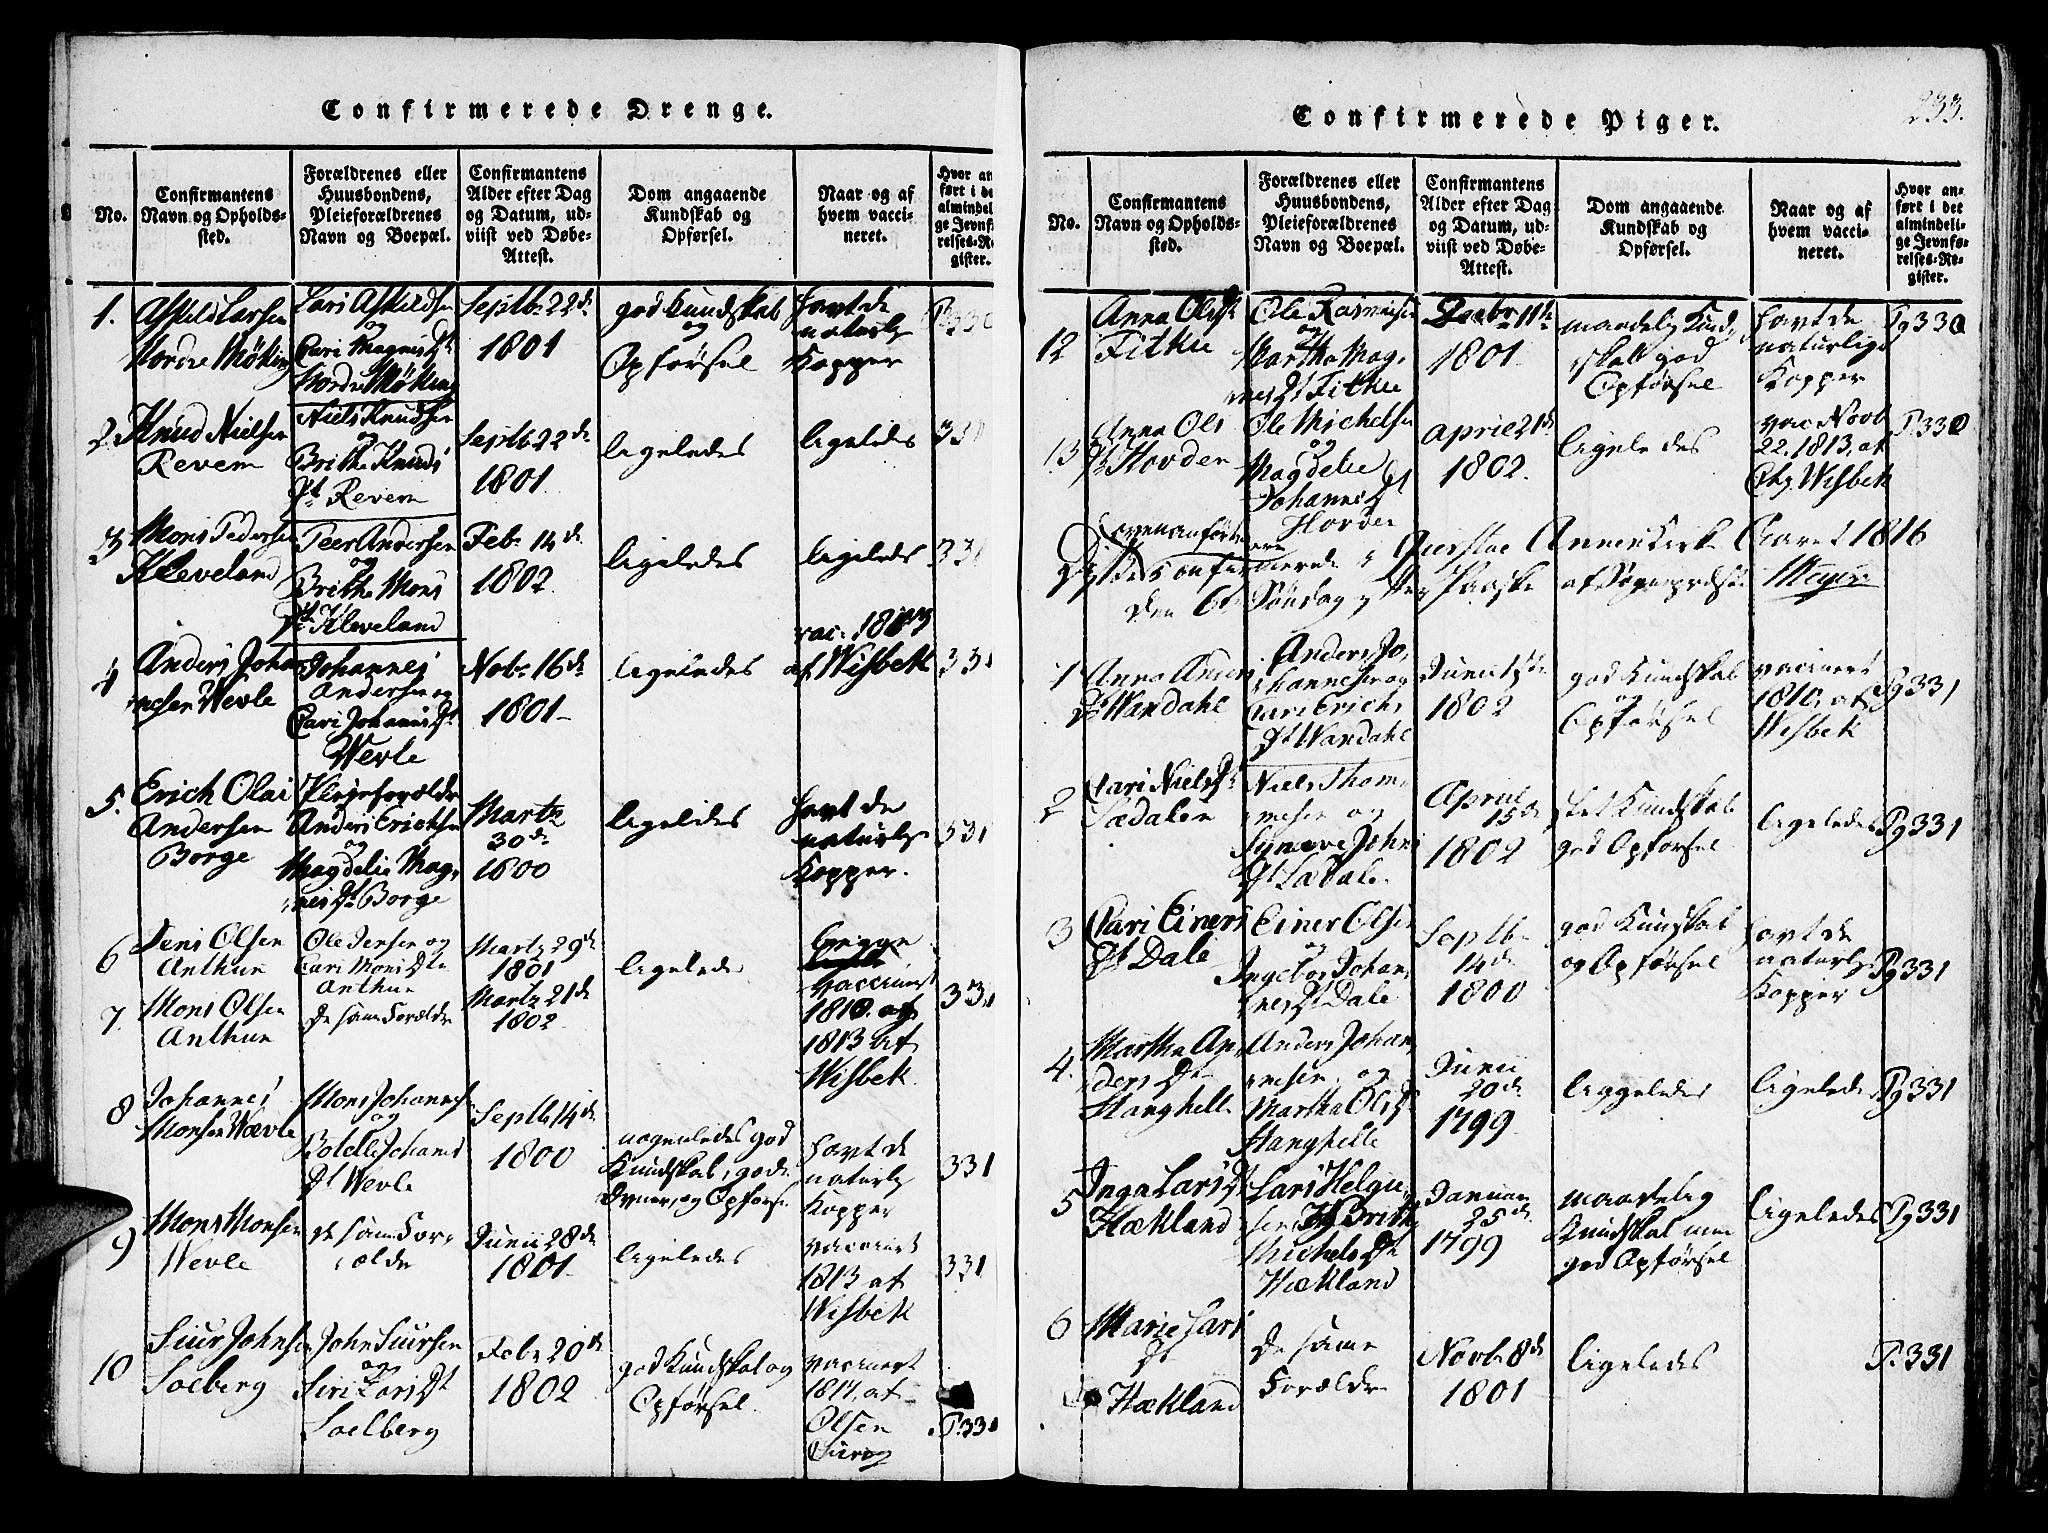 Confirmerede Drenge.
No.
Confirmantens
Navn og Opholds-
sted.
Forældrenes eller
Huusbondens,
Pleieforældrenes
Navn og Boepæl.
Confirmantens
Alder efter Dag
og Datum, ud-
viist ved Døbe-
Attest.
Dom angaaende
Kundskab og
Opførsel.
Naar og af
hvem vacci-
neret.
Hvor an
ført i de
almindel
ge Jevnf
relses-Re
gister.
1.
Askild Larsen
Nordre Møking
Lars Askildsen
og
Cari Magnis Dt
Nordre Møking
Septb. 22de
1801
god Kundskab
og
Opførsel
havt de
naturlg
Kopper
330
2.
Knud Nielsen
Revem
Niels Knudsen
og
Brithe Knuds
Dt Revem
Septb 22de
1801.
ligeledes
ligeledes
3
Mons Pedersen
Kleveland
Peer Andersen
og
Brithe Mons
Dt Kleveland
Feb. 14de
1802.
ligeledes
ligeledes
331
4
Anders Johan
nesen Wevle
Johannes
Andersen og
Cari Johanis Dt
Wevle
Nob. 16de
1801
ligeledes
vac. 1813
af Wisbek
331
5.
Erich Olai
Andersen
Borge
Pleieforældre
Anders Erichsen
og
Magdeli Mag,
nis Dt Borge
Martz
30de
1800
ligeledes
havt de
naturlg
Kopper.
331
6
Jens Olsen
Anthun
Ole Jensen og
Cari Mons Dtr
Anthun
Martz 29de
1801
ligeledes
begge
vaccinert
331
7.
Mons Olsen
Anthun
de same Forældre
Martz 21de
1802
1813 af
Wisbek
8
Johannes
Monsen Wævle
Mons Johannes
og
Botelle Johanes
Dt Wevle
Septb 14de
1800
nogenledes god
Kundskab, gode
Evner, og Opførse
havt de
naturlg
Kopper
331
9
Mons Monsen
Wevle
de same For,
ældre
Junii 28de
1801
ligeledes
vaccinert
1813 af
Wisbek
331
10
Siur Johnsen
Solberg
John Siursen
og
Siri Lars Dt
Soelberg
Feb. 20de
1802
god Kundskab og
Opførsel.
vaccinert
1814. af
Olsen
P. 331
Confirmerede Piger.
233.
No.
Confirmantens
Navn og Opholds-
sted.
Forældrenes eller
Huusbondens,
Pleieforældrenes
Navn og Boepæl.
Confirmantens
Alder efter Dag
og Datum, ud-
viist ved Døbe-
Attest.
Dom angaaende
Kundskab og
Opførsel.
Naar og af
hvem vacci-
neret.
Hvor an-
ført i det
almindeli-
ge Jevnfø-
relses-Re-
gister.
12
Anna Ols Dt
Fitkie
Ole Rasmusen
og
Martha Mag,
nes Dt Fitkie
11te
1801
maadelig Kund,
skab god
Opførsel
havt de
naturlige
Kopper
Pg 330
13
Anna Ols
Dt Hovden
Ole Michelsen
og
Magdelie
Johannis Dt
Hovden
April 21de
1802.
ligeledes
vac. Novb
22. 1813, af
Chp. Wisbek
P. 330
ovenanførte
ere
Confirmerede i Annex Kirke Aaret 1816
den 6te Søndag efter Paaske af Sognepresten Meyer
1
Anna Anders
Dt Wandahl
Anders Jo,
hannesen og
Cari Erichs
Dt Wandahl
Junii
1802
god Kundskab
og
Opførsel
vacineret
1810, af
Wisbek
Pg 331
2
Cari Niels Dt
Sædalen
Niels Thom,
mesen og
Synneve Johns
Dt Sædale.
April
15de
1802
slet Kundskab
god Opførsel
ligeledes
Pg 331
3
Cari Einers
Dt Dale
Einer Olsen
og
Ingebor Johan,
nes Dt Dale
Septb.
14de
1800
god Kundskab
og Opførsel
havt de
naturlg
Kopper
Pg 331
4.
Martha An,
ders Dt
Hanghelle
Anders Johan,
nesen, og
Martha Ols Dt
Hanghelle
Junii
20de
1799
liggeledes
ligelede
Pg 331
5
Inga Lars Dt
Hækland
Lars Helge,
sen og Brithe
Michels Dt
Hækland
Januar
25de
1799
maadelig
Kundskab men
god Opførsel
ligeledes
Pg 331
6
Marie Lars
Dt
Hækland
De same
Forældre
Novb. 8de
1801
ligeledes
P. 331